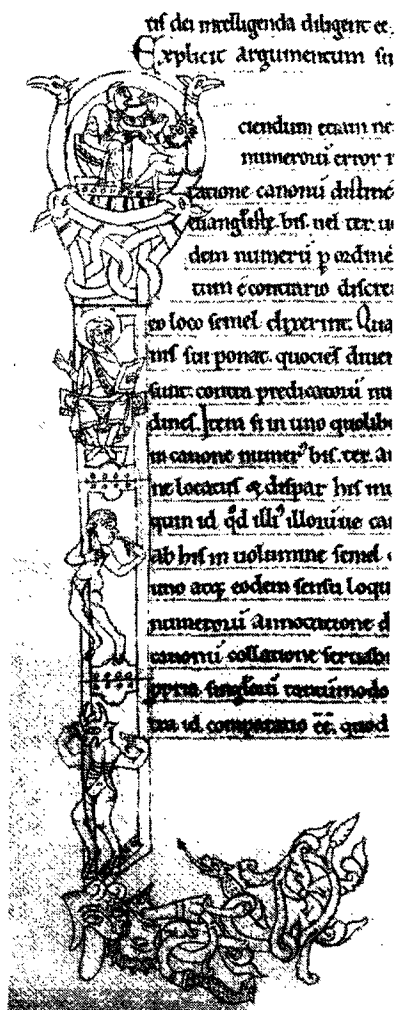 tis dei intelligenda diligent̄ ex
Explicit argumentum
ciendum etiam ne
numerorū error
ratione canonū distinc
euangl̄iste bis. uel ter.
dem numerū p ordinē
tum econtrario discre
eo loco semel dixerint. Qua
nis sui ponat. quociēs diuer
sunt. contra predicatorū nu
dines. Item si in uno quolib;
in canone numerꝰ bis. ter. au
ne locatus & dispar his nu
quin id qd̄ illiꝰ illorūue ca
ab his in uolumine semel
uno atq; eodem sensu loqu
numerorū annotatione d
canonū collatione
ppria singlorū tantūmodo
tra id comparatio ēē. quod